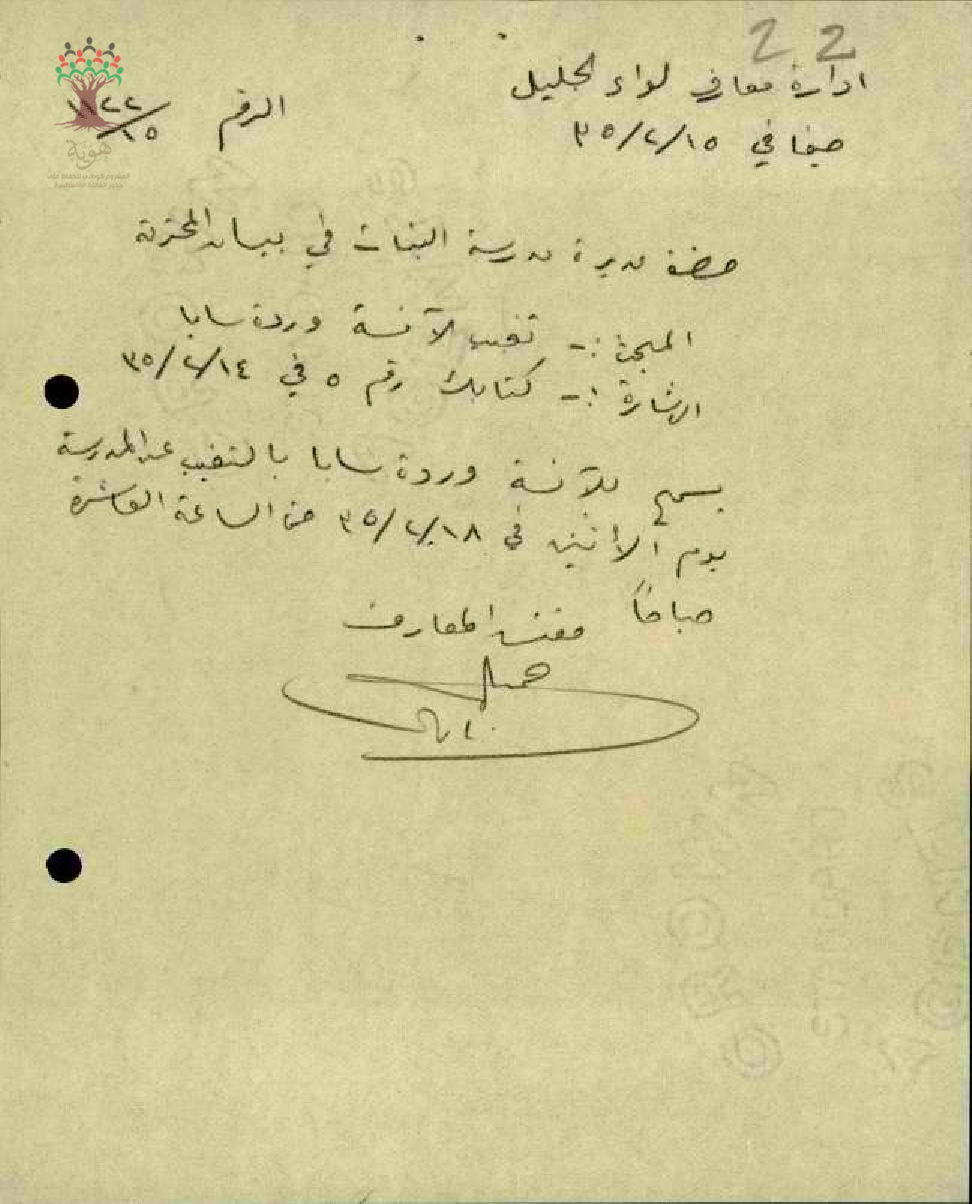 22
ادارة معارف لواء الجليل
حيفا في ٣٥/٢/١٥
الرقم ١٢٢/١٥
هوية
حضرة مديرة مدرسة البنات في بيسان المحترمة
المبحث :- تغيب الآنسة وردة سابا
الاشارة :- كتابك رقم ٥ في ٣٥/٢/١٤
يسمح للآنسة وردة سابا بالتغيب عن المدرسة
يوم الاثنين في ٣٥/٢/١٨ من الساعة العاشرة
صباحاً
مفتش المعارف